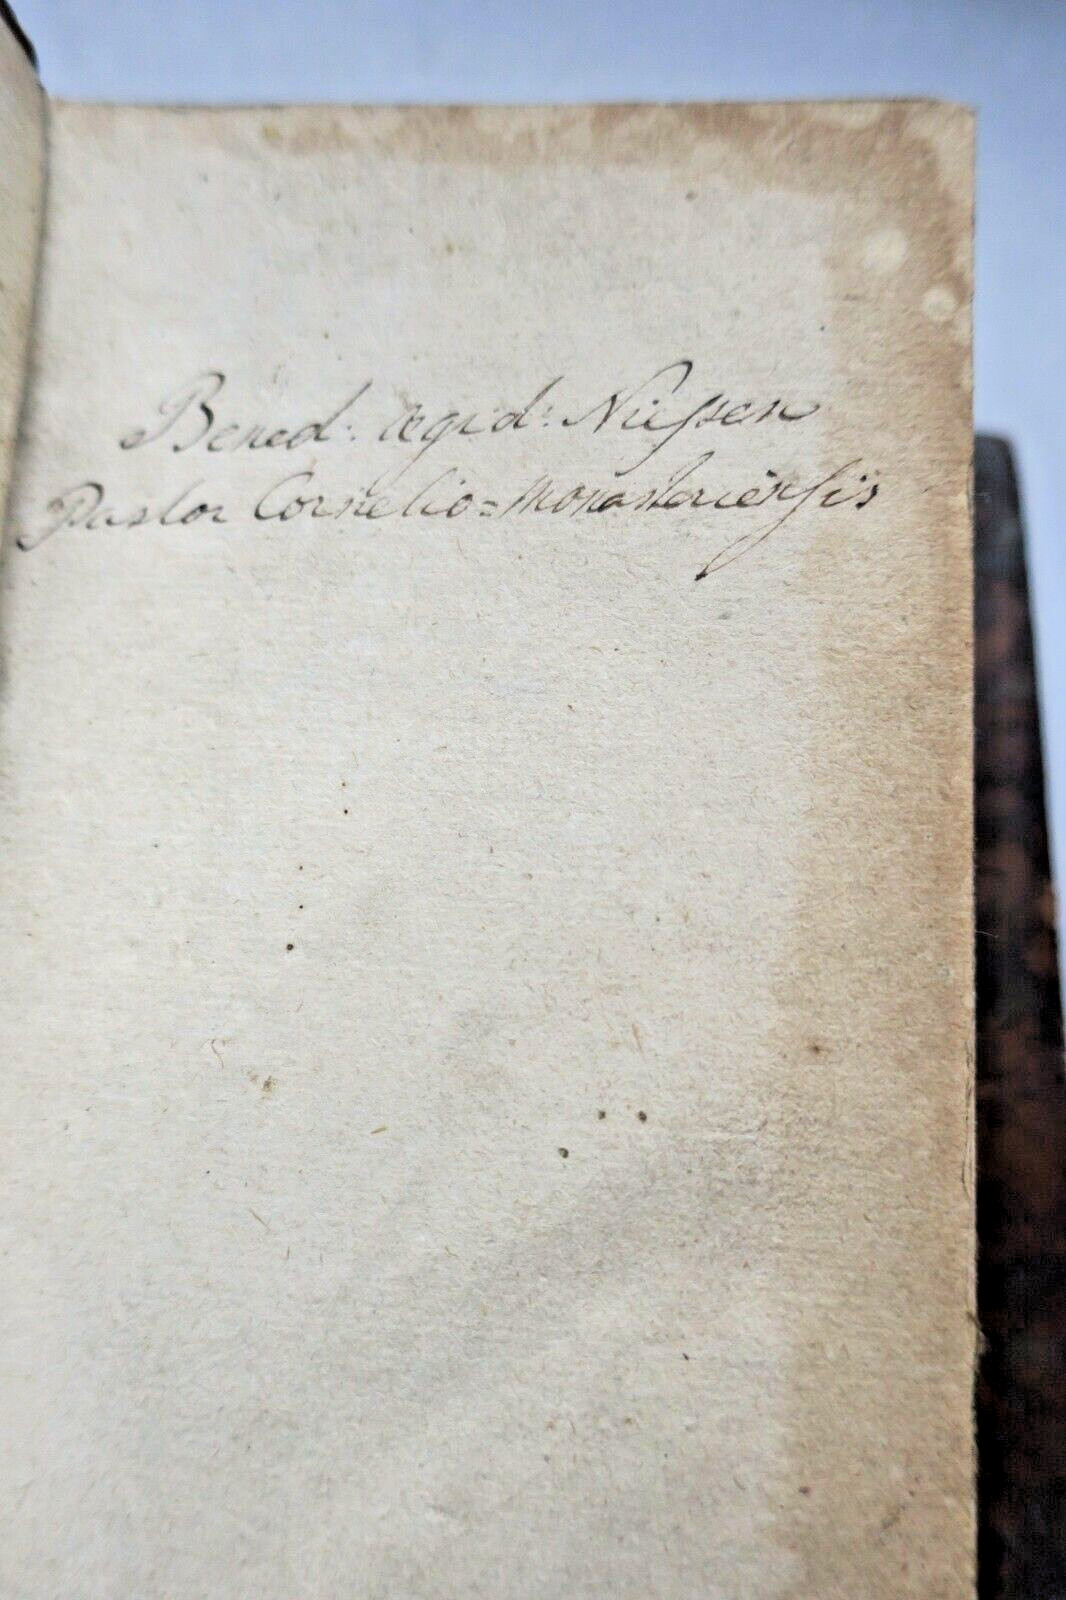 Bened: Ægid: Nießen
Pastor Cornelio=monasteriensis